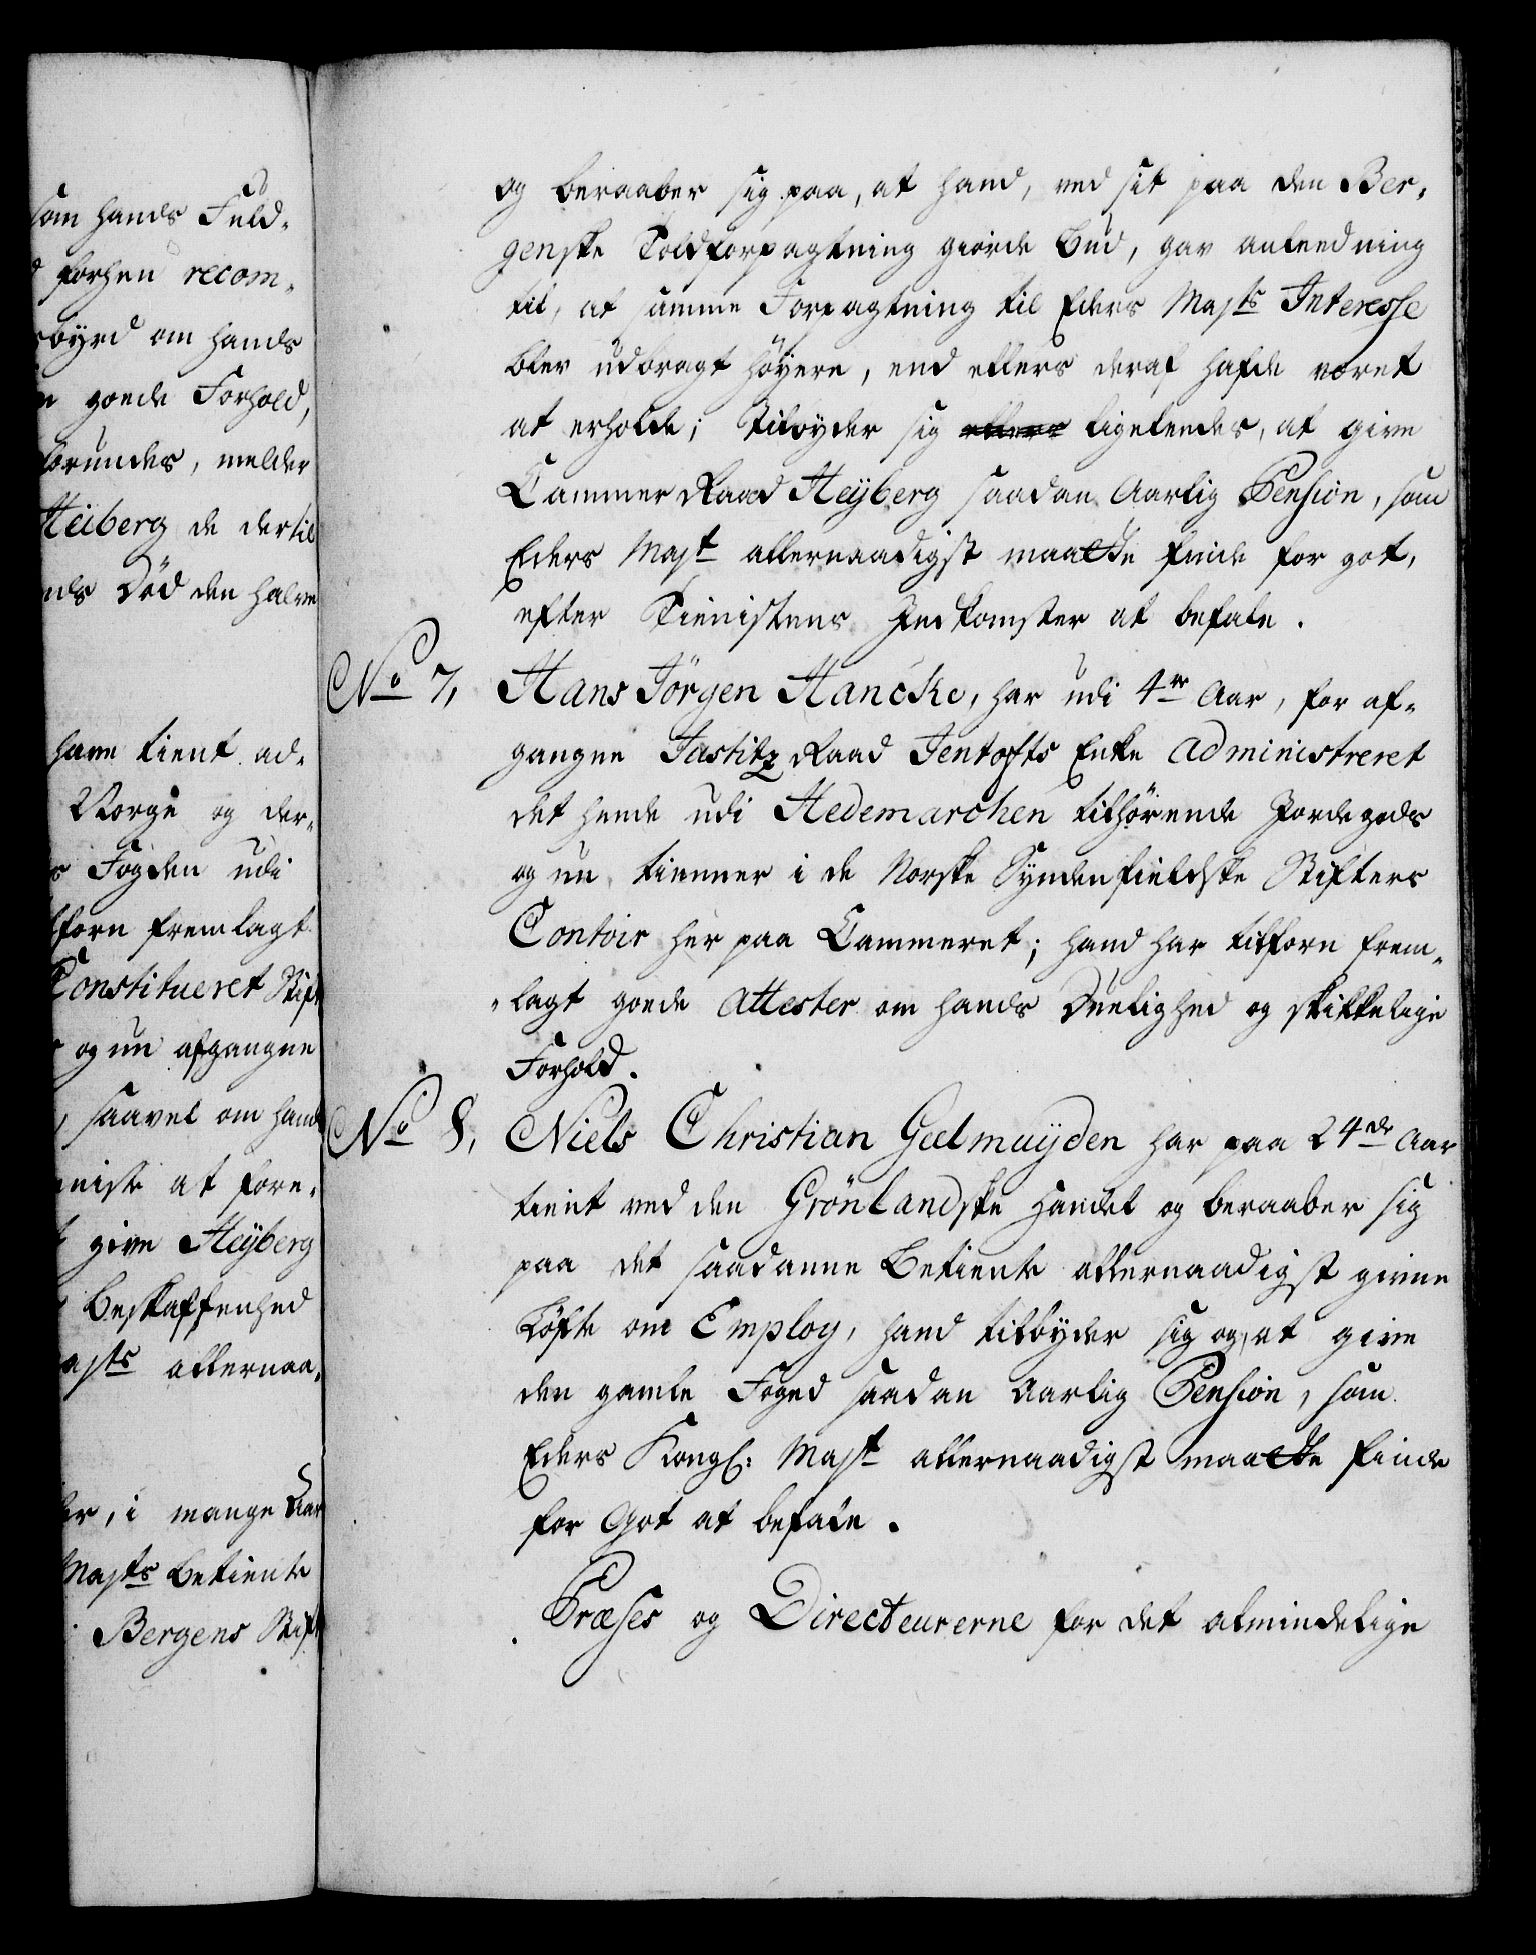 som hands Fuld-
forhen recom-
byrd om hands
goede Forhold,
melder
Heiberg de dertil
Död den halve
have tient ad-
Norge og der-
Fogden udi
forn fremlagt
Constitueret Stift
og nu afgangne
saavel om hands
at fore-
give Heÿberg
Beskaffenhed
allernaa-
i mange Aar
Majts Betiente
Bergens Stift
og beraaber sig paa, at hand, ved sit paa den Ber-
genske Toldforpagtning giorde Bud, gav anleedning
til, at samme Forpagtning til Eders Majts Interesse
blev udbragt höyere, end ellers deraf hafde været
at erholde; Tilbyder sig ellers ligeleedes, at give
Cammer Raad Heÿberg saadan Aarlig Pension, som
Eders Majt allernaadigst maatte finde for got,
efter Tienistens Indkomster at befale.
No 7, Hans Jörgen Hancke, har udi 4re Aar, for af-
gangne Justitz Raad Jentofts Enke administreret
det hende udi Hedemarchen tilhörende Jordegods
og nu tienner i de Norske Syndenfieldske Stifters
Contoir her paa Cammeret; hand har tilforn frem-
-lagt goede Attester om hands Duelighed og skikkelige
Forhold.
No 8, Niels Christian Geelmuÿden har paa 24de Aar
tient ved den Grönlandske Handel og beraaber sig
paa det saadanne Betiente allernaadigst givne
Löfte om Employ, hand tilbyder sig og, at give
den gamle Foged saadan Aarlig Pension, som
Eders Kongl: Majt allernaadigst maatte finde
for Got at befale.
Præses og Directeurerne for det almindelige